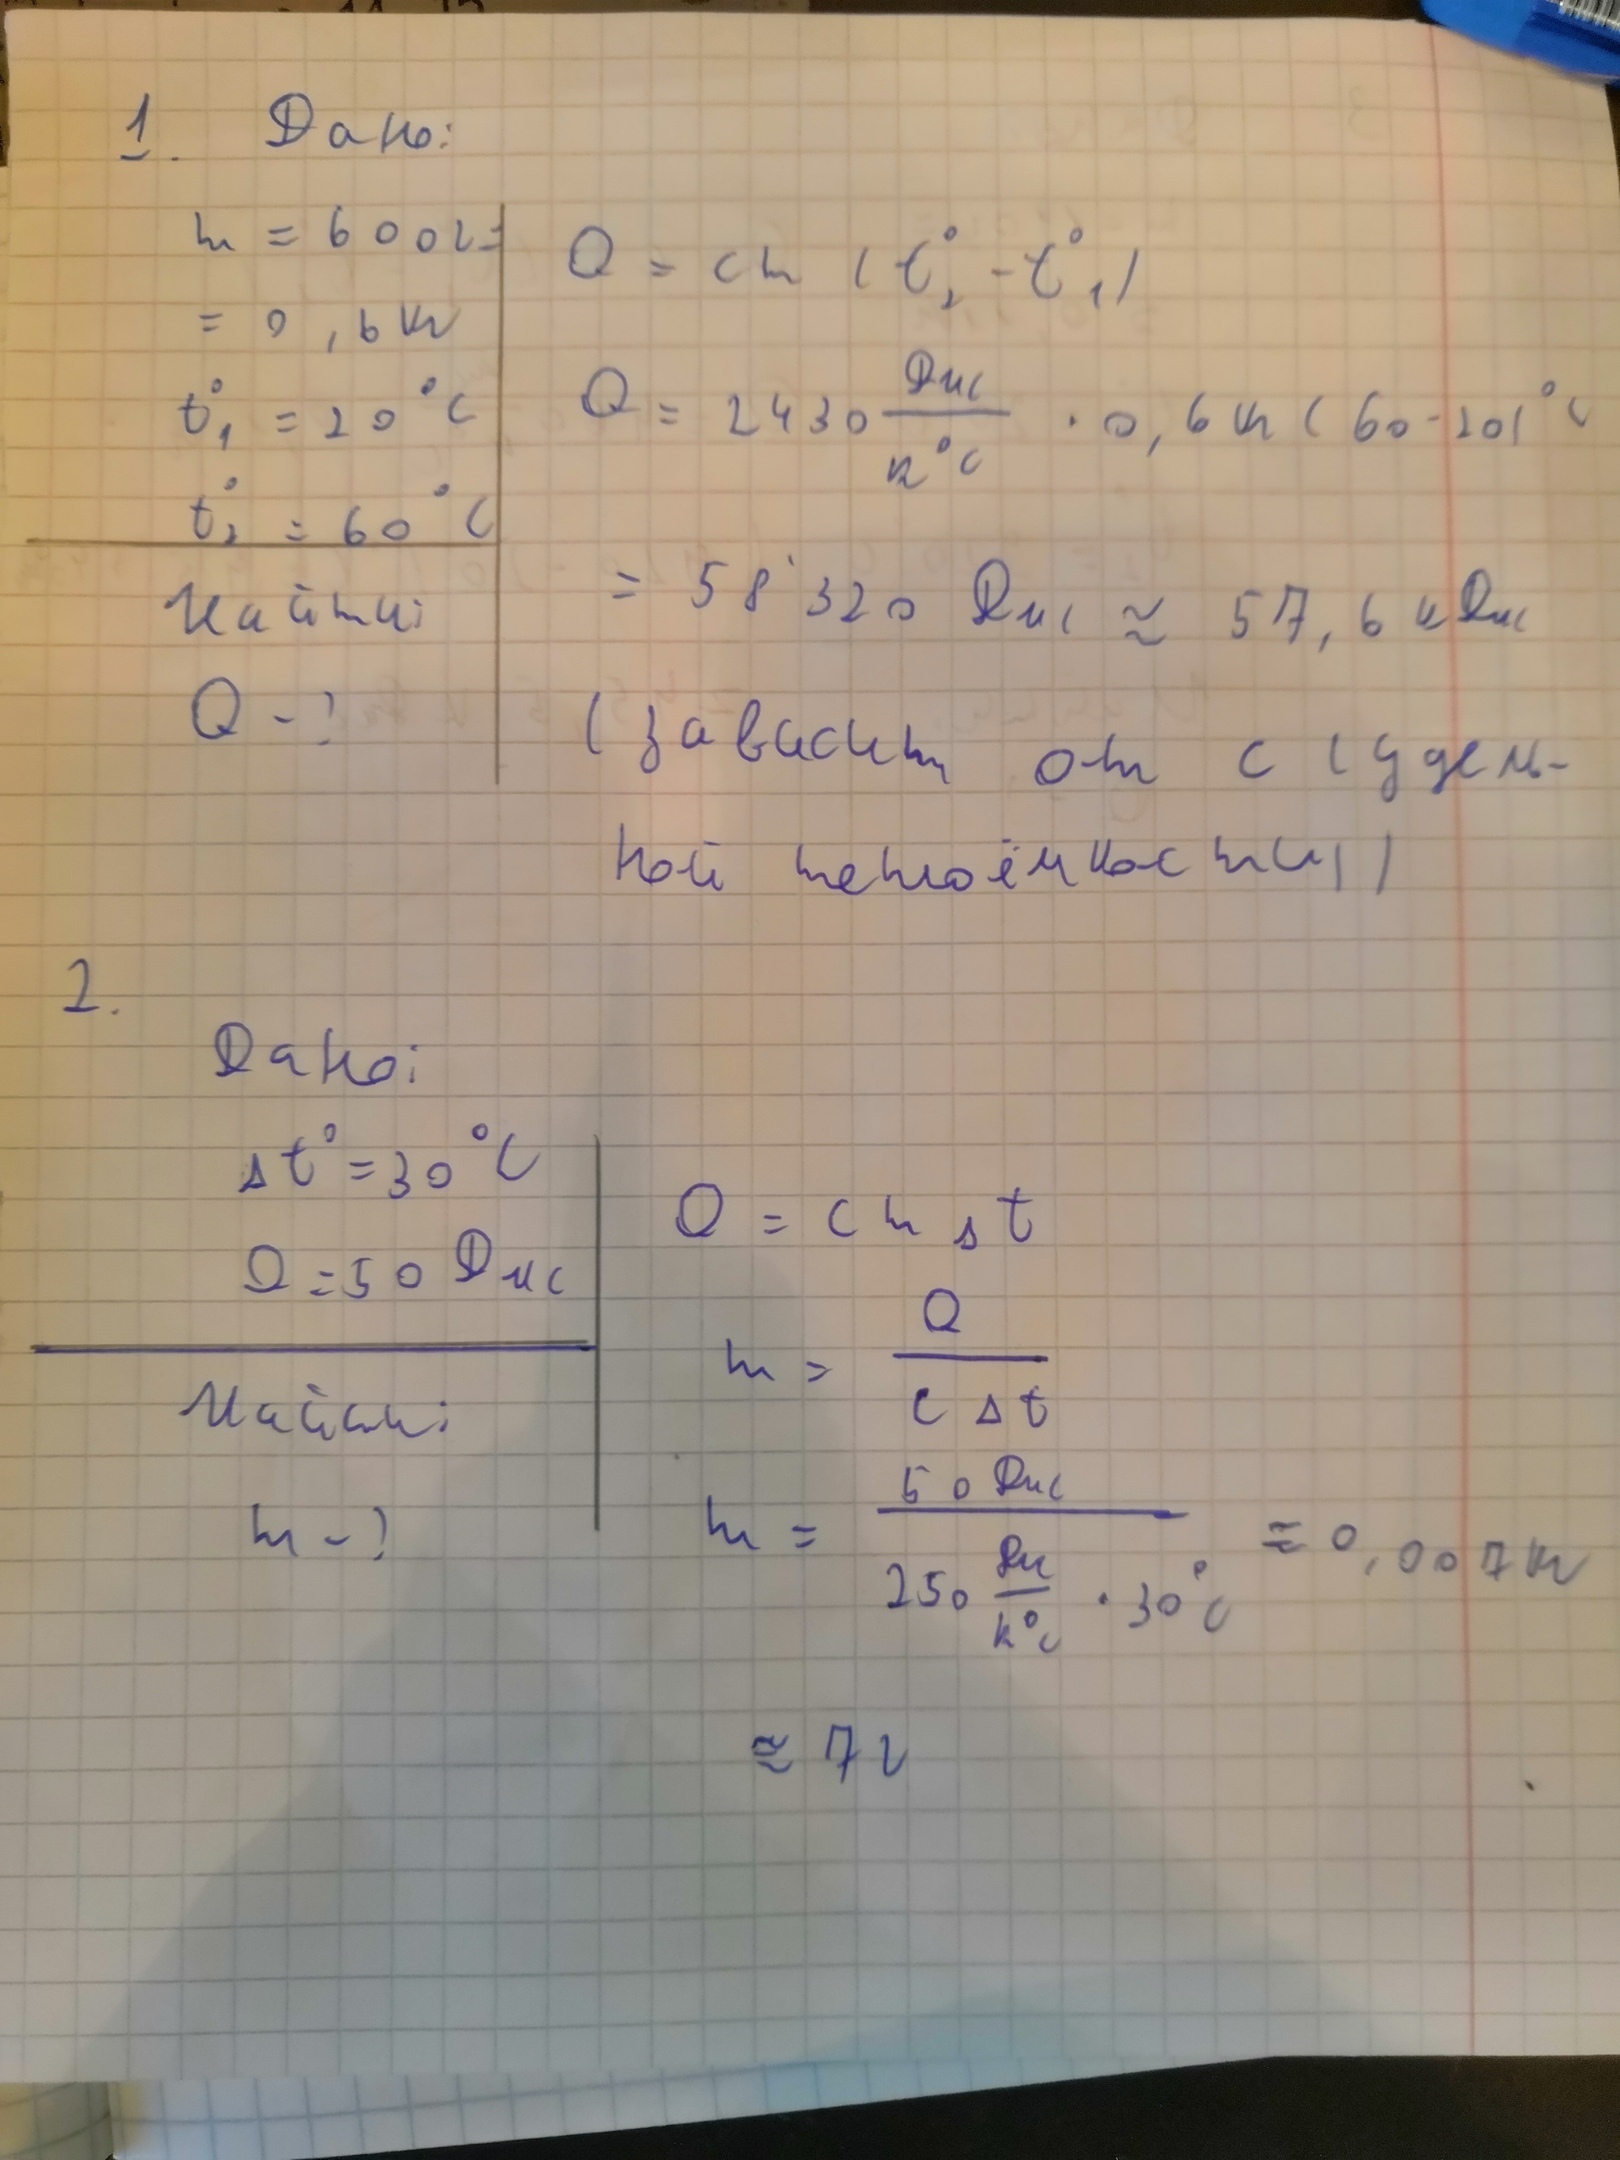 1. Дано:
m = 600г =
= 0,6 кг
t°₁ = 20°C
t°₂ = 60°C
Найти:
Q - ?
Q = cm (t°₂ - t°₁)
Q = 2430 Дж/кг°C · 0,6 кг (60-20)°C
= 58'320 Дж ≈ 57,6 кДж
(зависит от c (удель-
ной теплоёмкости))
2.
Дано:
Δt° = 30°C
Q = 50 Дж
Найти:
m - ?
Q = cmΔt
m = Q / cΔt
m = 50 Дж / 250 Дж/кг°C · 30°C ≈ 0,007 кг
≈ 7 г